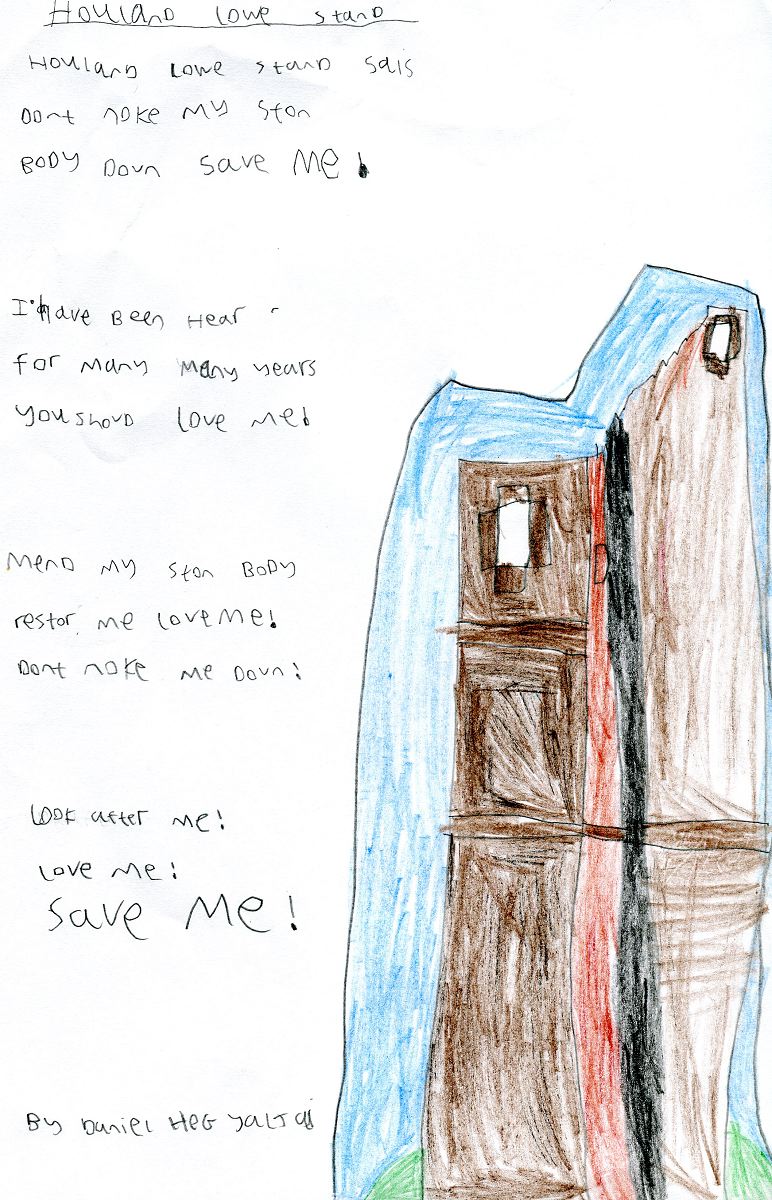 Houland Lowe stand
Houland Lowe stand sais
Dont noke my ston
Body Doun save me!
I have Been Hear
for many many years
you shoud love me!
Mend my ston Body
restor me love me!
Dont noke me Doun!
Look after me!
Love me!
save me!
By Daniel